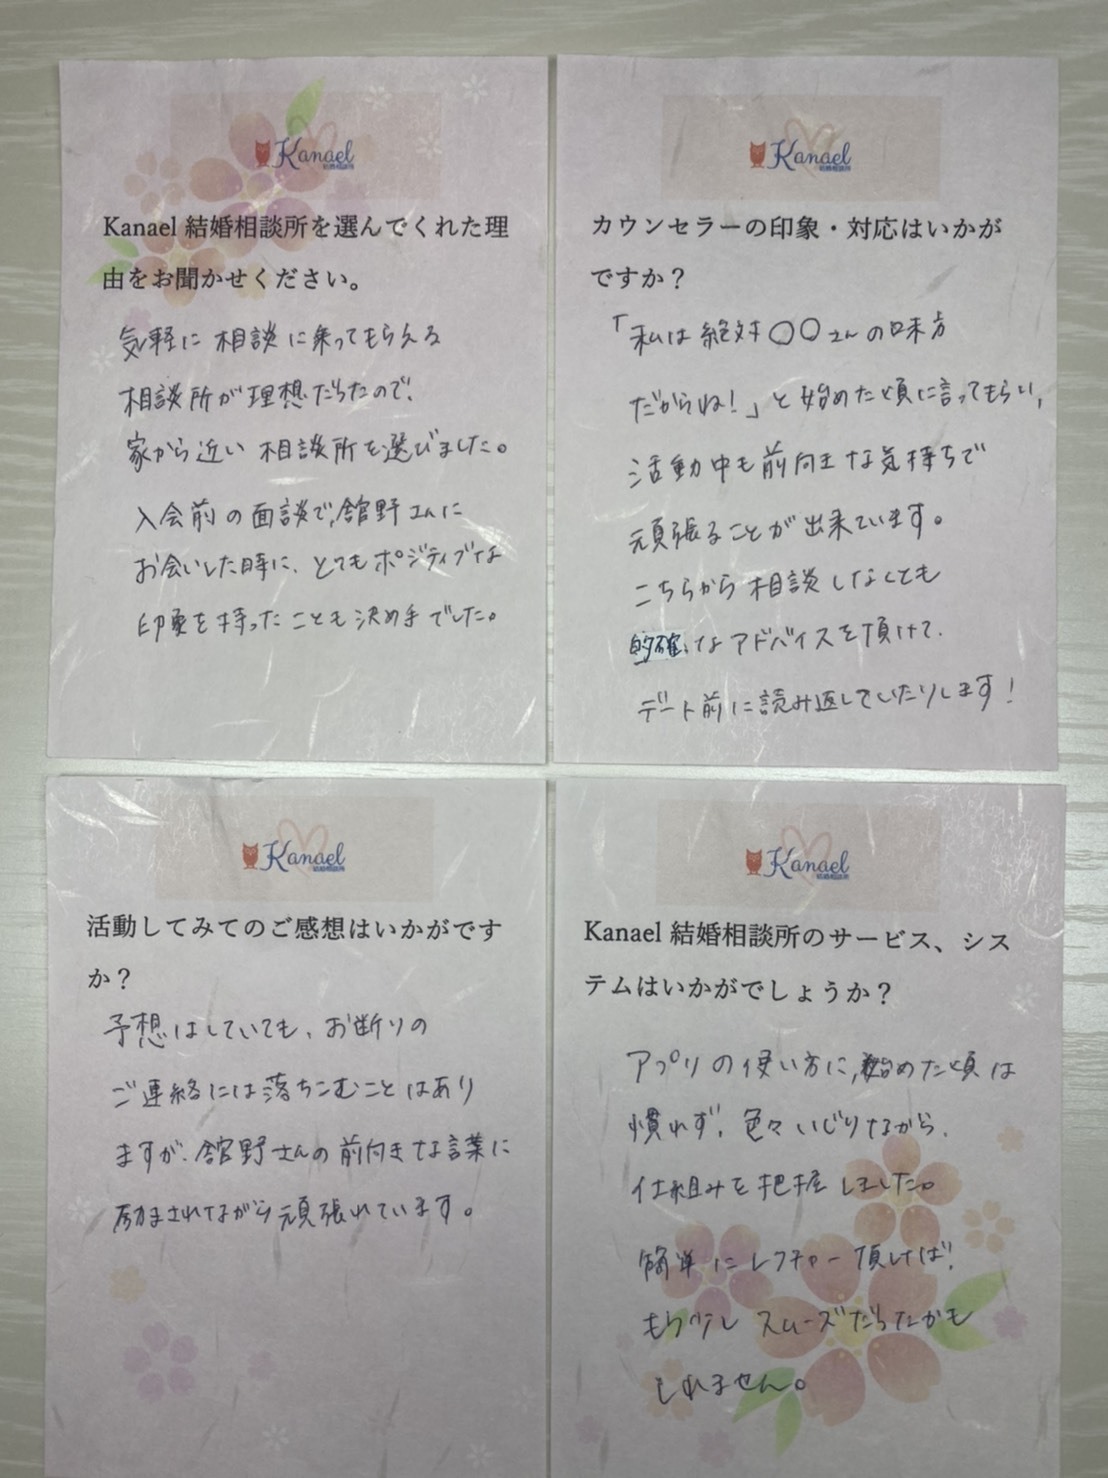 Kanael
結婚相談所
Kanael 結婚相談所を選んでくれた理
由をお聞かせください。
気軽に相談に乗ってもらえる
相談所が理想だったので、
家から近い相談所を選びました。
入会前の面談で、舘野さんに
お会いした時に、とてもポジティブな
印象を持ったことも決め手でした。
Kanael
結婚相談所
カウンセラーの印象・対応はいかが
ですか？
「私は絶対〇〇さんの味方
だからね！」と始めた頃に言ってもらい、
活動中も前向きな気持ちで
頑張ることが出来ています。
こちらから相談しなくとも
的確なアドバイスを頂けて、
デート前に読み返していたりします！
Kanael
結婚相談所
活動してみてのご感想はいかがです
か？
予想はしていても、お断りの
ご連絡には落ちこむことはあり
ますが、舘野さんの前向きな言葉に
励まされながら頑張れています。
Kanael
結婚相談所
Kanael 結婚相談所のサービス、シス
テムはいかがでしょうか？
アプリの使い方に、始めた頃は
慣れず、色々いじりながら、
仕組みを把握しました。
簡単にレクチャー頂ければ、
もう少しスムーズだったかも
しれません。